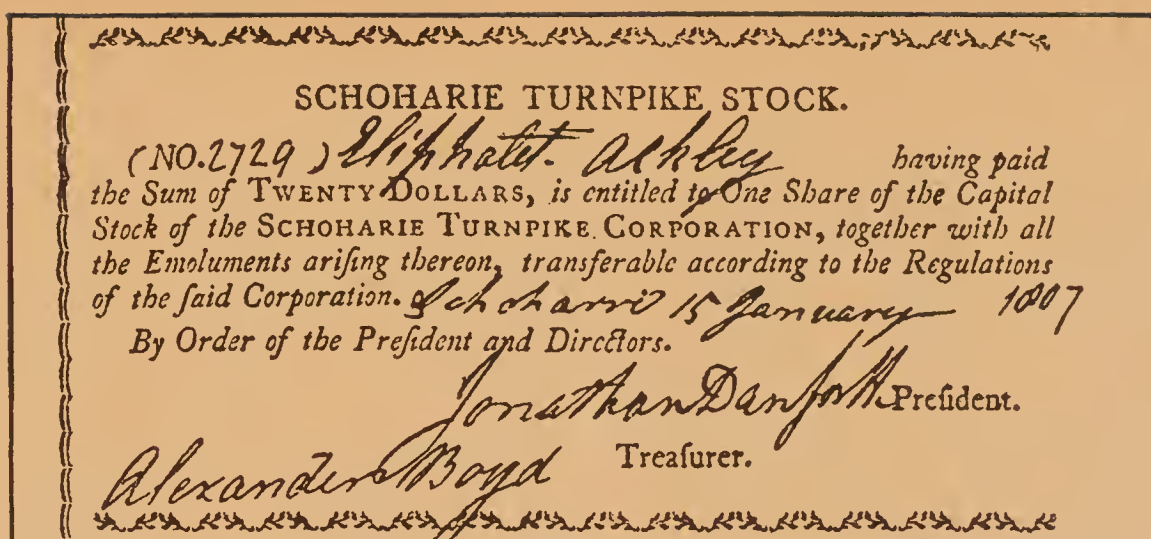 SCHOHARIE TURNPIKE STOCK.
(NO. 2729) Eliphalet Ackley having paid
the Sum of TWENTY DOLLARS, is entitled to One Share of the Capital
Stock of the SCHOHARIE TURNPIKE CORPORATION, together with all
the Emoluments ariſing thereon, transferable according to the Regulations
of the ſaid Corporation. Schoharrie 15 January 1807
By Order of the Preſident and Directors.
Jonathan Danforth Preſident.
Treaſurer.
Alexander Boyd